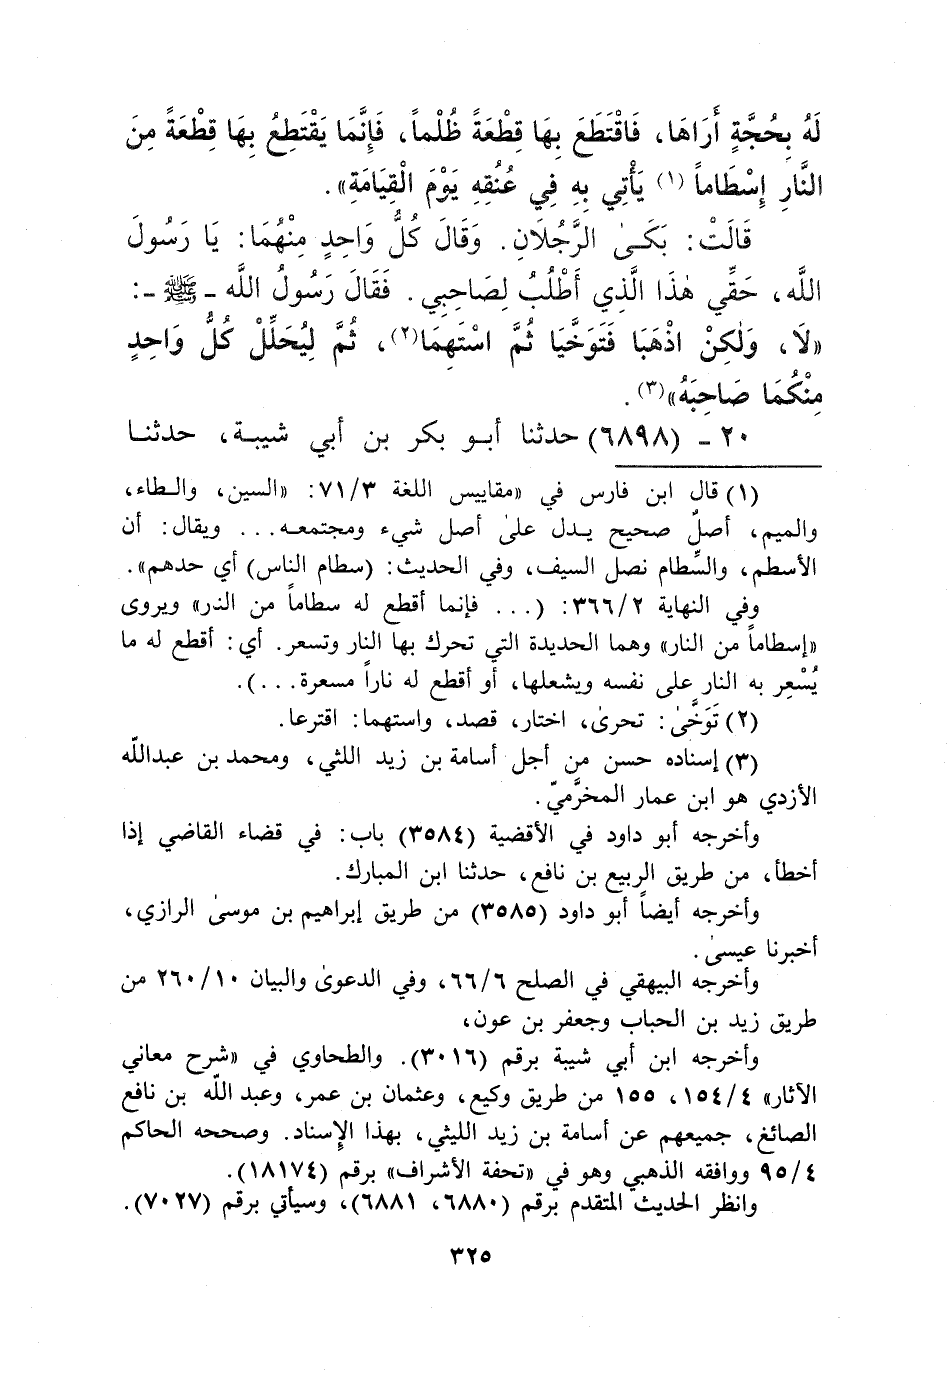 لَهُ بِحُجَّةٍ أَرَاهَا، فَاقْتَطَعَ بِهَا قِطْعَةً ظُلْماً، فَإِنَّمَا يَقْتَطِعُ بِهَا قِطْعَةً مِنَ
النَّارِ إِسْطَاماً (١) يَأْتِي بِهِ فِي عُنُقِهِ يَوْمَ الْقِيَامَةِ».
قَالَتْ: بَكَىٰ الرَّجُلَانِ. وَقَالَ كُلُّ وَاحِدٍ مِنْهُمَا: يَا رَسُولَ
اللَّه، حَقِّي هٰذَا الَّذِي أَطْلُبُ لِصَاحِبِي. فَقَالَ رَسُولُ اللَّه - ﷺ -:
«لَا، وَلٰكِنْ اذْهَبَا فَتَوَخَّيَا ثُمَّ اسْتَهِمَا(٢)، ثُمَّ لِيُحَلِّلْ كُلُّ وَاحِدٍ
مِنْكُمَا صَاحِبَهُ»(٣).
٢٠ - (٦٨٩٨) حدثنا أبو بكر بن أبي شيبة، حدثنا
(١) قال ابن فارس في «مقاييس اللغة ٧١/٣: «السين، والطاء،
والميم، أصلٌ صحيح يدل علىٰ أصل شيء ومجتمعه... ويقال: أن
الأسطم، والسِّطام نصل السيف، وفي الحديث: (سطام الناس) أي حدهم».
وفي النهاية ٣٦٦/٢: (... فإنما أقطع له سطاماً من النار» ويروى
«إسطاماً من النار» وهما الحديدة التي تحرك بها النار وتسعر. أي: أقطع له ما
يُسْعِر به النار على نفسه ويشعلها، أو أقطع له ناراً مسعرة...).
(٢) تَوَخَّىٰ: تحرىٰ، اختار، قصد، واستهما: اقترعا.
(٣) إسناده حسن من أجل أسامة بن زيد الليثي، ومحمد بن عبدالله
الأزدي هو ابن عمار المخرَّميّ.
وأخرجه أبو داود في الأقضية (٣٥٨٤) باب: في قضاء القاضي إذا
أخطأ، من طريق الربيع بن نافع، حدثنا ابن المبارك.
وأخرجه أيضاً أبو داود (٣٥٨٥) من طريق إبراهيم بن موسىٰ الرازي،
أخبرنا عيسىٰ.
وأخرجه البيهقي في الصلح ٦٦/٦، وفي الدعوىٰ والبيان ٢٦٠/١٠ من
طريق زيد بن الحباب وجعفر بن عون،
وأخرجه ابن أبي شيبة برقم (٣٠١٦). والطحاوي في «شرح معاني
الآثار» ١٥٤/٤، ١٥٥ من طريق وكيع، وعثمان بن عمر، وعبد الله بن نافع
الصائغ، جميعهم عن أسامة بن زيد الليثي، بهذا الإسناد. وصححه الحاكم
٩٥/٤ ووافقه الذهبي وهو في «تحفة الأشراف» برقم (١٨١٧٤).
وانظر الحديث المتقدم برقم (٦٨٨٠، ٦٨٨١)، وسيأتي برقم (٧٠٢٧).
٣٢٥